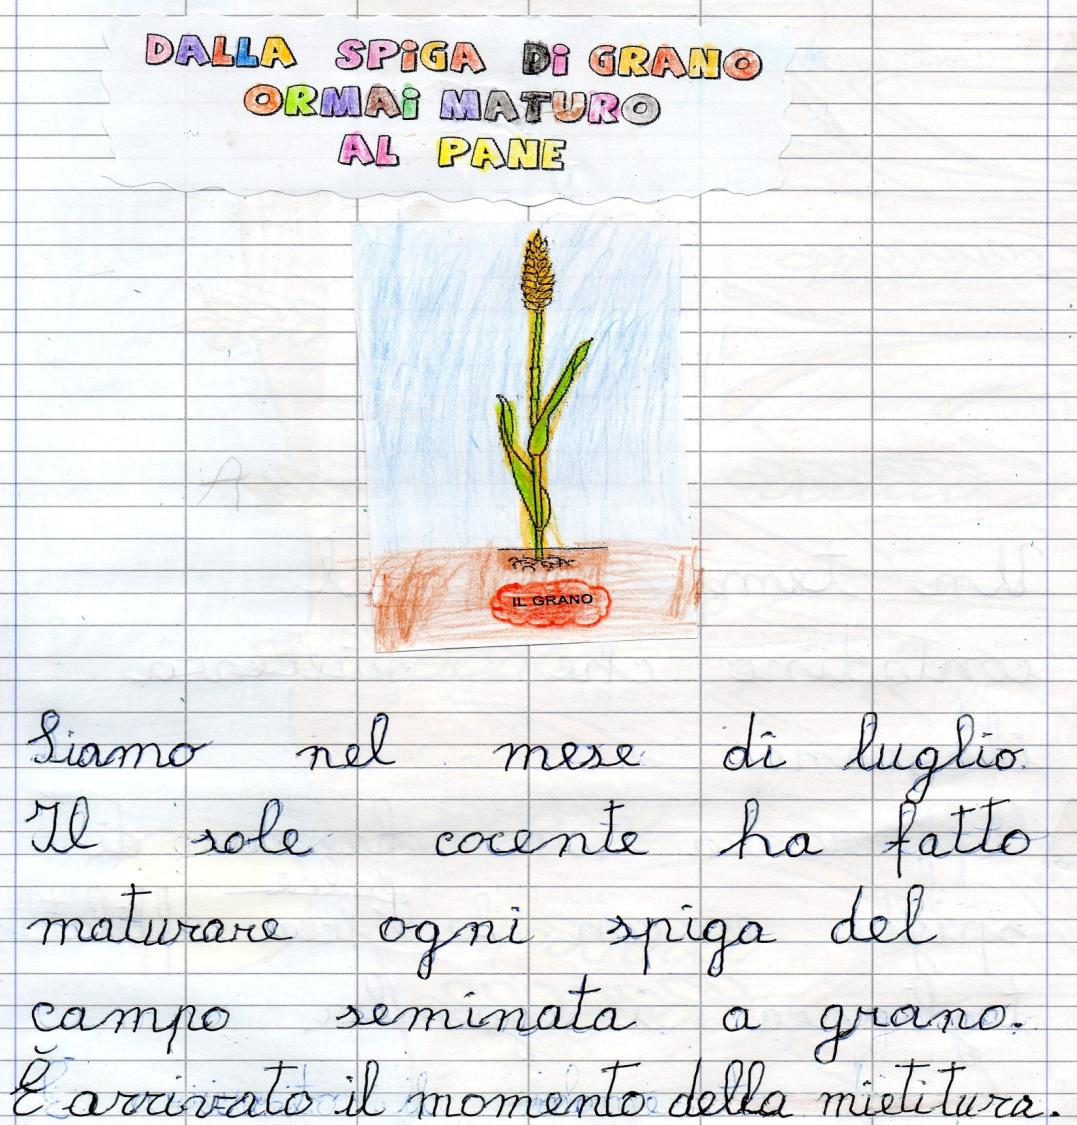 DALLA SPiGA Di GRANO
ORMAi MATURO
AL PANE
IL GRANO
Siamo nel mese di luglio.
Il sole cocente ha fatto
maturare ogni spiga del
campo seminata a grano.
È arrivato il momento della mietitura.